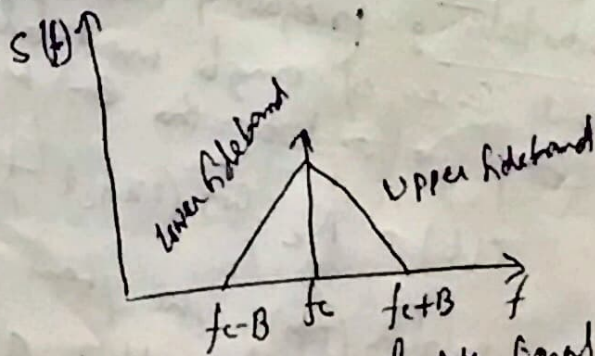 S(f)
Lower Sideband
Upper Sideband
fc-B fc fc+B f